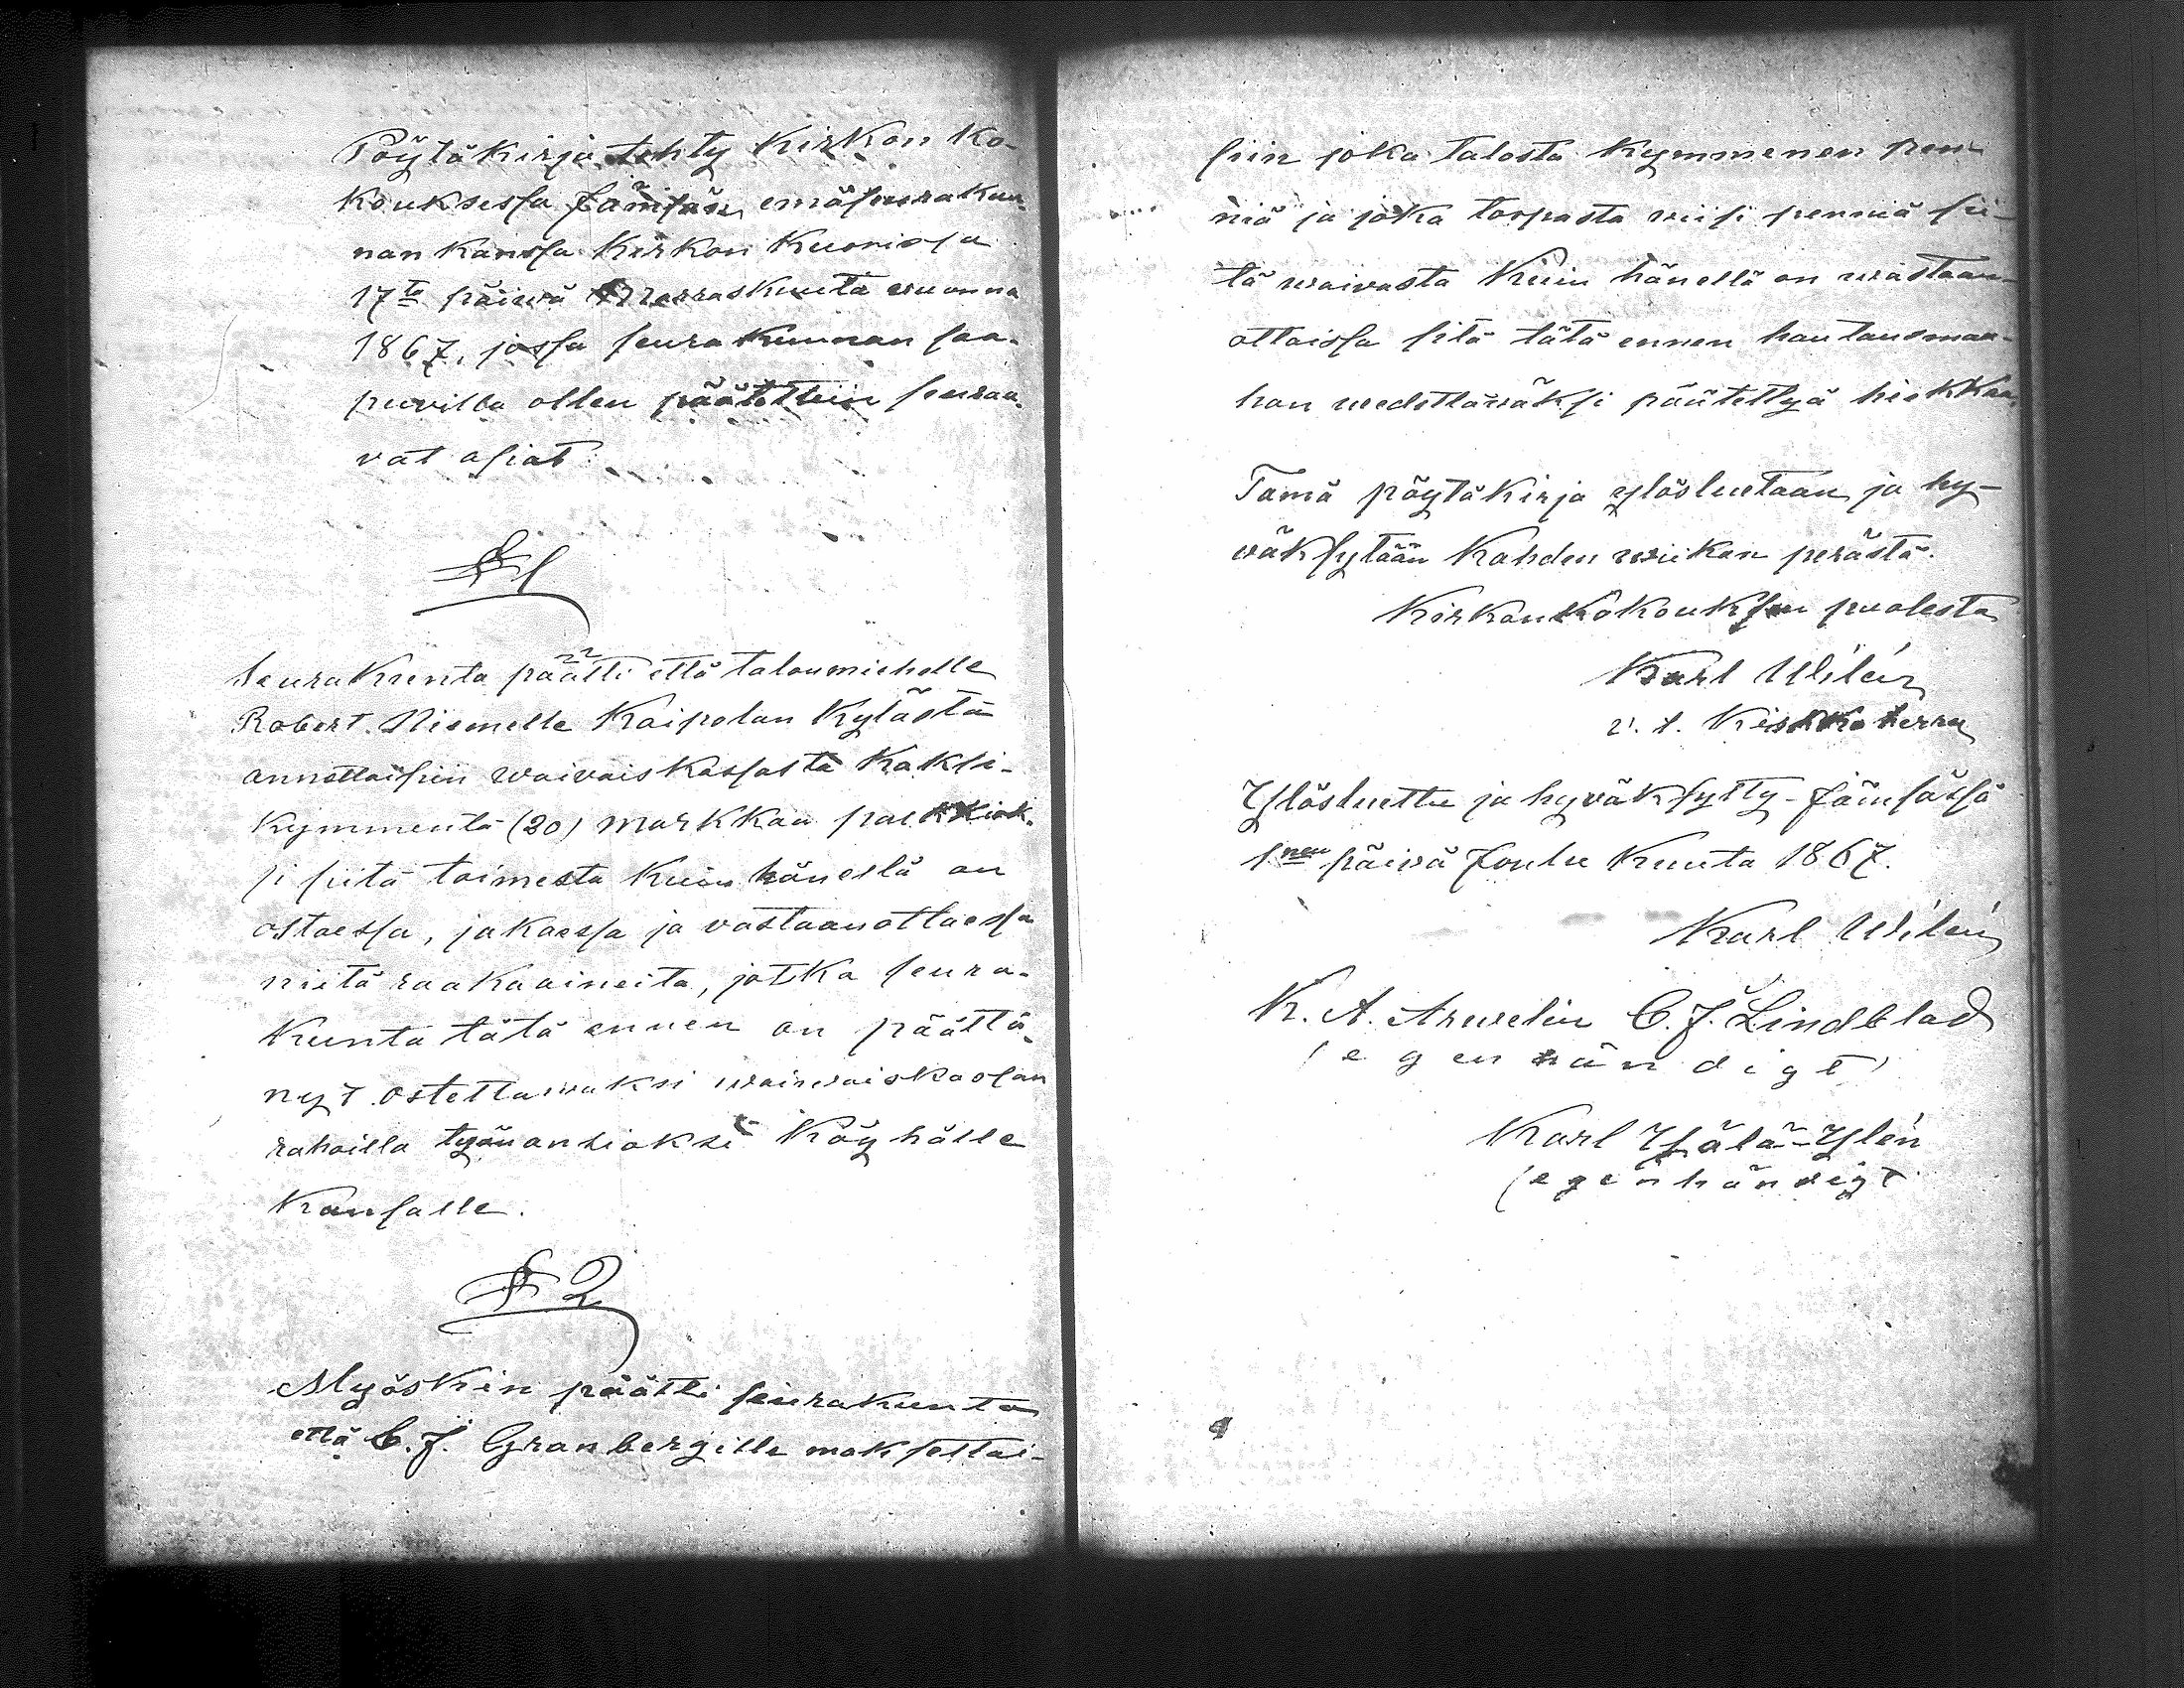 Pöytäkirja tehty Kirkon ko-
kouksessa Jämsän emäseurakun-
nan kanssa Kirkon Kuorissa
17to päiwä Marraskuuta wuonna
1867, jossa seurakunnan saa-
puvilla ollen päätettiin seuraa-
vat asiat
§ 1
Seurakunta päätti että talonmiehelle
Robert Niemelle Kaipolan Kylästä
annettaisiin waivaiskassasta Kaksi-
kymmentä (20) markkaa palkkiok-
si siitä toimesta kuin hänellä on
ostaessa, jakaessa ja vastaanottaessa
niitä raakaaineita, jotka seura-
kunta tätä ennen on päättä-
nyt ostettawaksi waiwaiskassan
rahoilla työnansioksi Köyhälle
Kansalle.
§ 2
Myöskin päätti seurakunta
että C. J. Granbergille maksettai-
siin joka talosta kymmenen pen-
niä ja joka torpasta wiisi penniä sii-
tä waivasta kuin hänellä on wastaan-
ottaissa sitä tätä ennen hautausmaa-
han wedettäwäksi päätettyä hiekkaa.
Tämä pöytäkirja ylösluetaan ja hy-
wäksytään Kahden wiikon perästä.
Kirkonkokouksen puolesta
Karl Wilén
v. t. Kirkkoherra
Ylösluettu ja hyväksytty Jämsässä
1nen päiwä Joulu Kuuta 1867.
Karl Wilén
K. A. Arwelin C. J. Lindblad
(egenhändigt)
Karl Ylä-Ylén
(egenhändigt